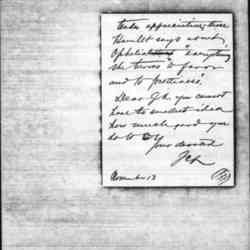 takes appreciation, those
Hamlet says about
Ophelia "everything
she turns to favor
and to prettiness".
Dear G. h. you cannot
have the smallest idea
how much good you
do to
your devoted
November 13